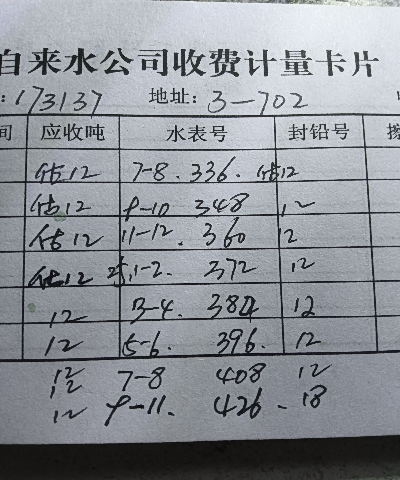 自来水公司收费计量卡片
: 173137 地址: 3-702
间 应收吨 水表号 封铅号
估12 7-8. 336. 估12
估12 9-10 348 12
估12 11-12. 360 12
估12 25,1-2. 372 12
12 3-4. 384 12
12 5-6. 396. 12
12 7-8 408 12
12 9-11. 426. 18